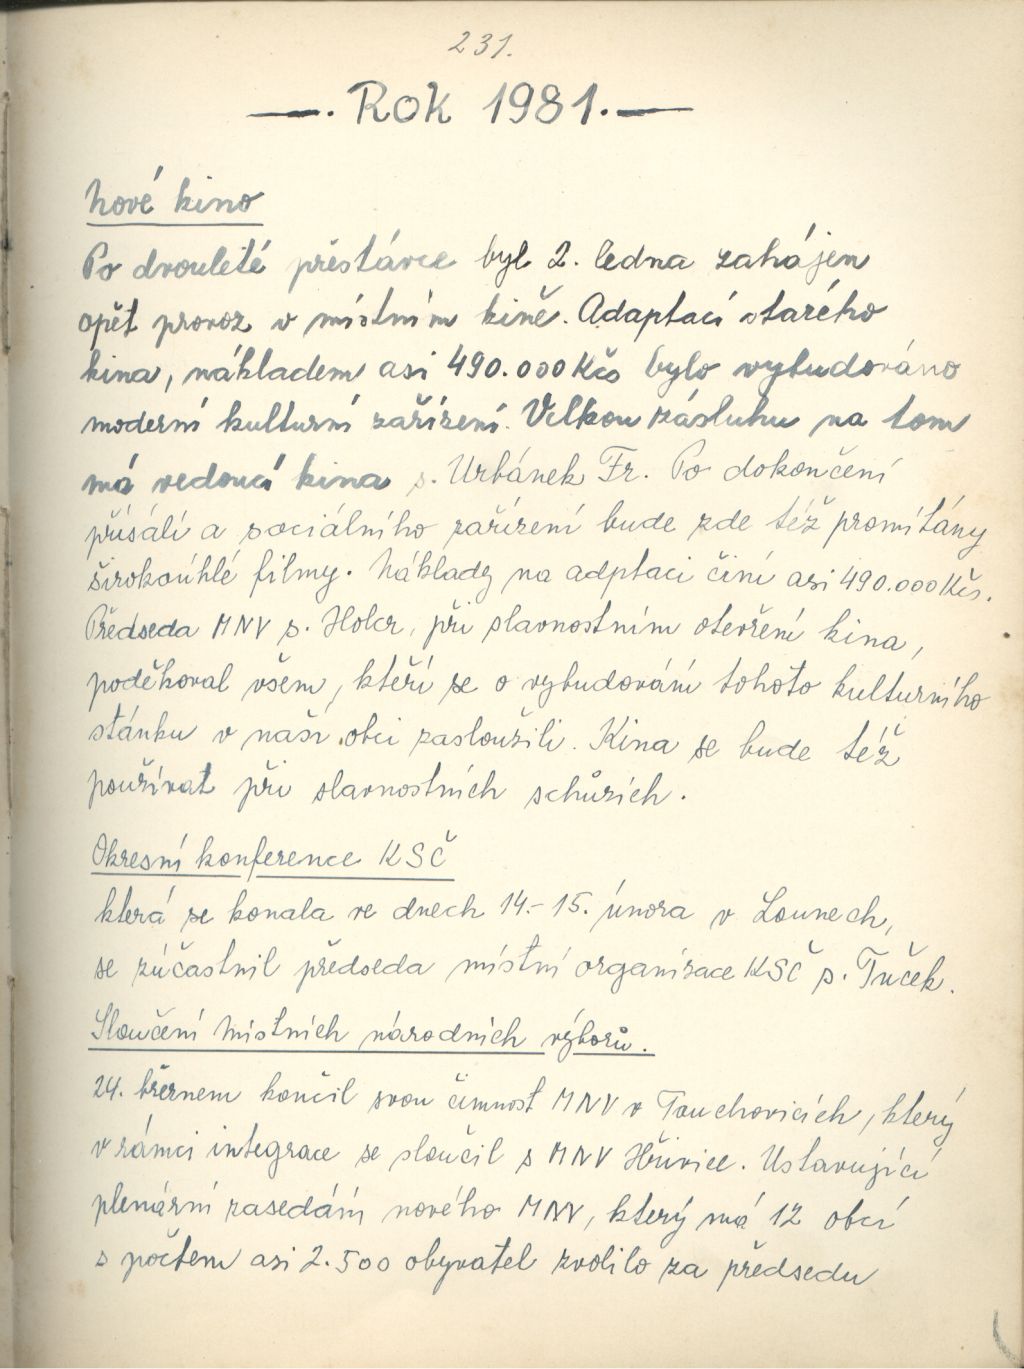 231.
—. Rok 1981. —
Nové kino
Po dvouleté přestávce byl 2. ledna zahájen
opět provoz v místním kině. Adaptací starého
kina, nákladem asi 490.000 Kčs bylo vybudováno
moderní kulturní zařízení. Velkou zásluhu na tom
má vedoucí kina s. Urbánek Fr. Po dokončení
přísálí a sociálního zařízení bude zde též promítány
širokoúhlé filmy. Náklady na adptaci činí asi 490.000 Kčs.
Předseda MNV s. Holcr, při slavnostním otevření kina,
poděkoval všem, kteří se o vybudování tohoto kulturního
stánku v naší obci zasloužili. Kina se bude též
používat při slavnostních schůzích.
Okresní konference KSČ
která se konala ve dnech 14.-15. února v Lounech,
se zúčastnil předseda místní organizace KSČ s. Tuček.
Sloučení Místních národních výborů.
24. březnem končil svou činnost MNV v Touchovicích, který
v rámci integrace se sloučil s MNV Hřivice. Ustavující
plenární zasedání nového MNV, který má 12 obcí
s počtem asi 2.500 obyvatel zvolilo za předsedu